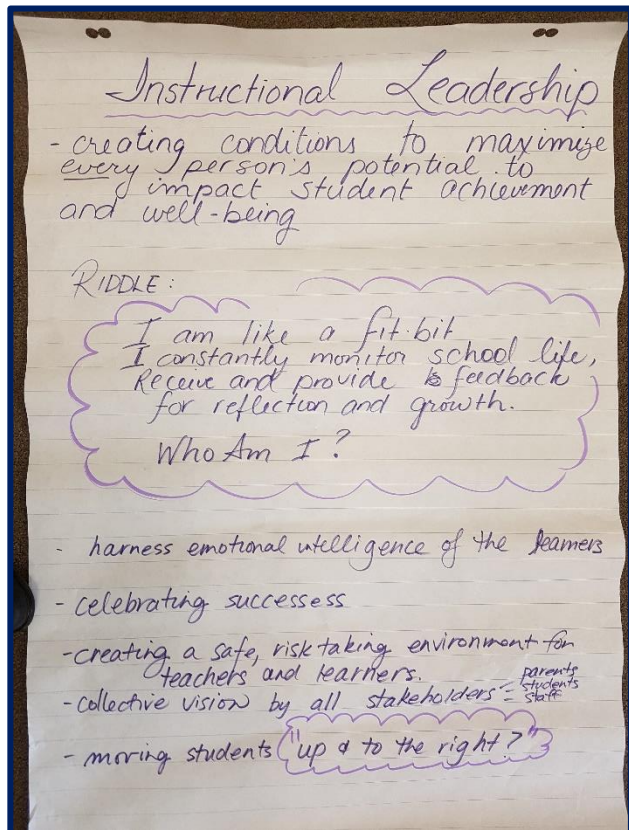 Instructional Leadership
- creating conditions to maximize
every person's potential to
impact student achievement
and well-being
RIDDLE:
I am like a fit-bit
I constantly monitor school life,
Receive and provide feedback
for reflection and growth.
Who Am I?
- harness emotional intelligence of the learners
- celebrating successess
- creating a safe, risk taking environment for
teachers and learners.
- collective vision by all stakeholders = parents
students
staff
- moving students "up & to the right?"